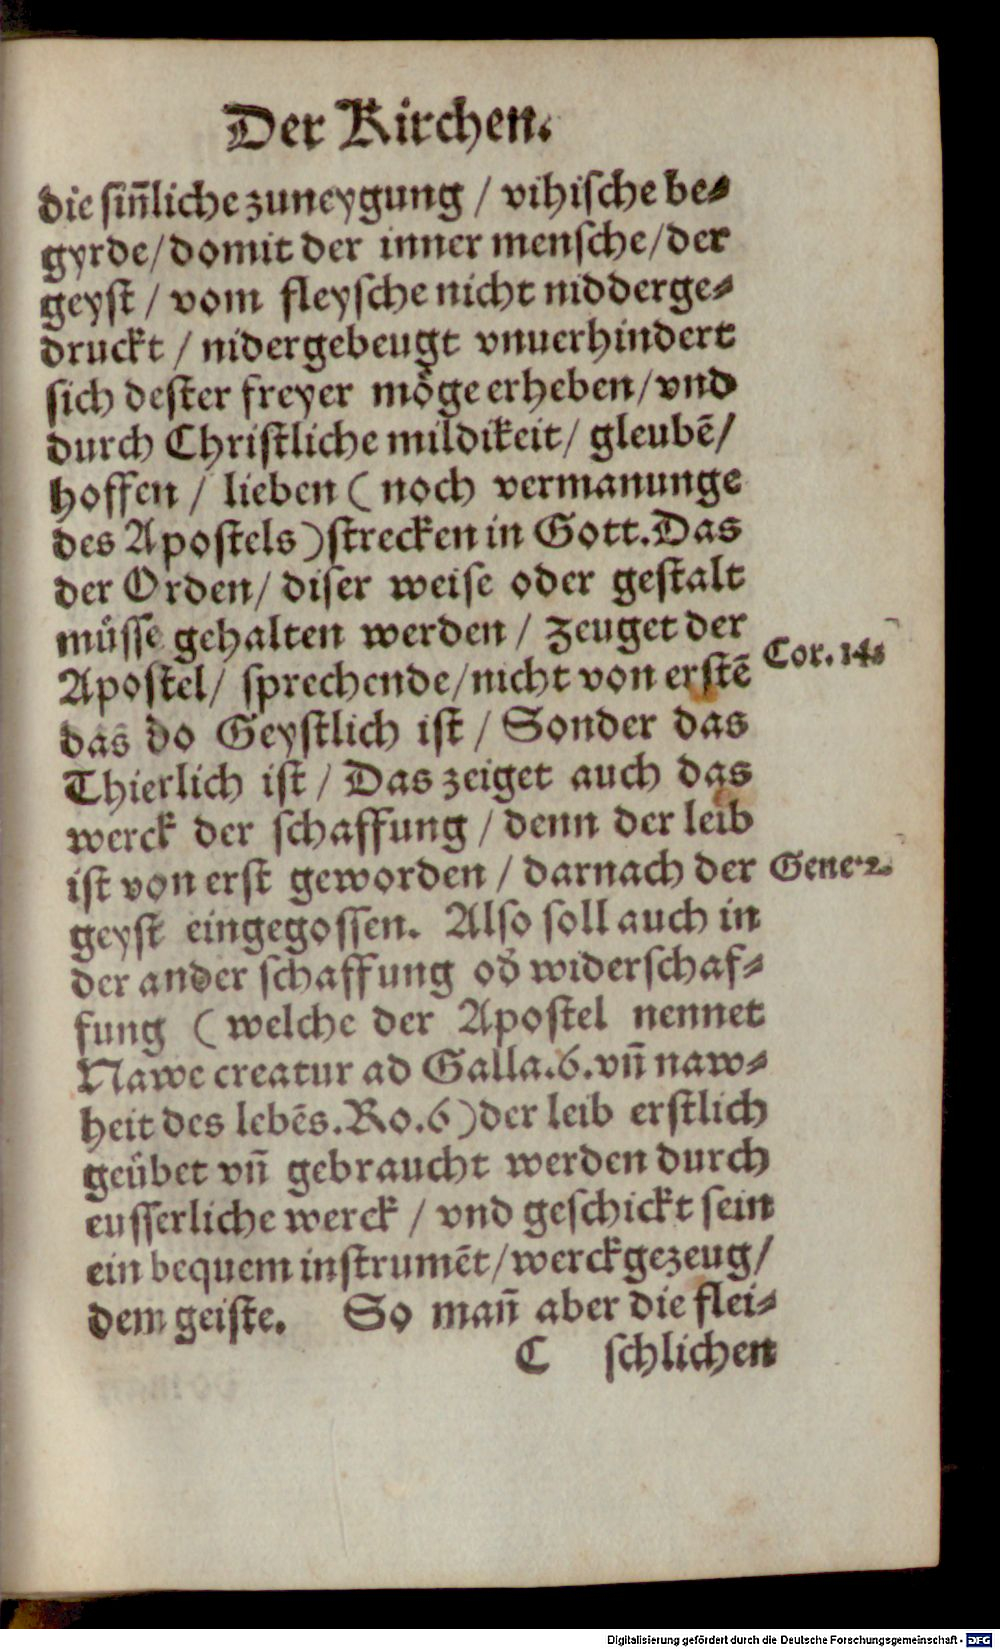 Der Kirchen.
die sin̄liche zuneygung / vihische be⸗
gyrde/domit der inner mensche/der
geyst / vom fleysche nicht nidderge⸗
druckt / nidergebeugt vnuerhindert
sich dester freyer mőge erheben/vnd
durch Christliche mildikeit/ gleubē/
hoffen / lieben ( noch vermanunge
des Apostels ) strecken in Gott. Das
der Orden/ diser weise oder gestalt
můsse gehalten werden / zeuget der
Apostel/ sprechende/nicht von erstē
Cor. 14.
das do Geystlich ist / Sonder das
Thierlich ist / Das zeiget auch das
werck der schaffung / denn der leib
ist von erst geworden / darnach der
Gene. 2.
geyst eingegossen. Also soll auch in
der ander schaffung od̄ widerschaf⸗
fung ( welche der Apostel nennet
Nawe creatur ad Galla. 6. vn̄ naw⸗
heit des lebēs. Ro. 6 ) der leib erstlich
geübet vn̄ gebraucht werden durch
eusserliche werck / vnd geschickt sein
ein bequem instrumēt/werckgezeug/
dem geiste. So man̄ aber die flei⸗
C schlichen
Digitalisierung gefördert durch die Deutsche Forschungsgemeinschaft - DFG